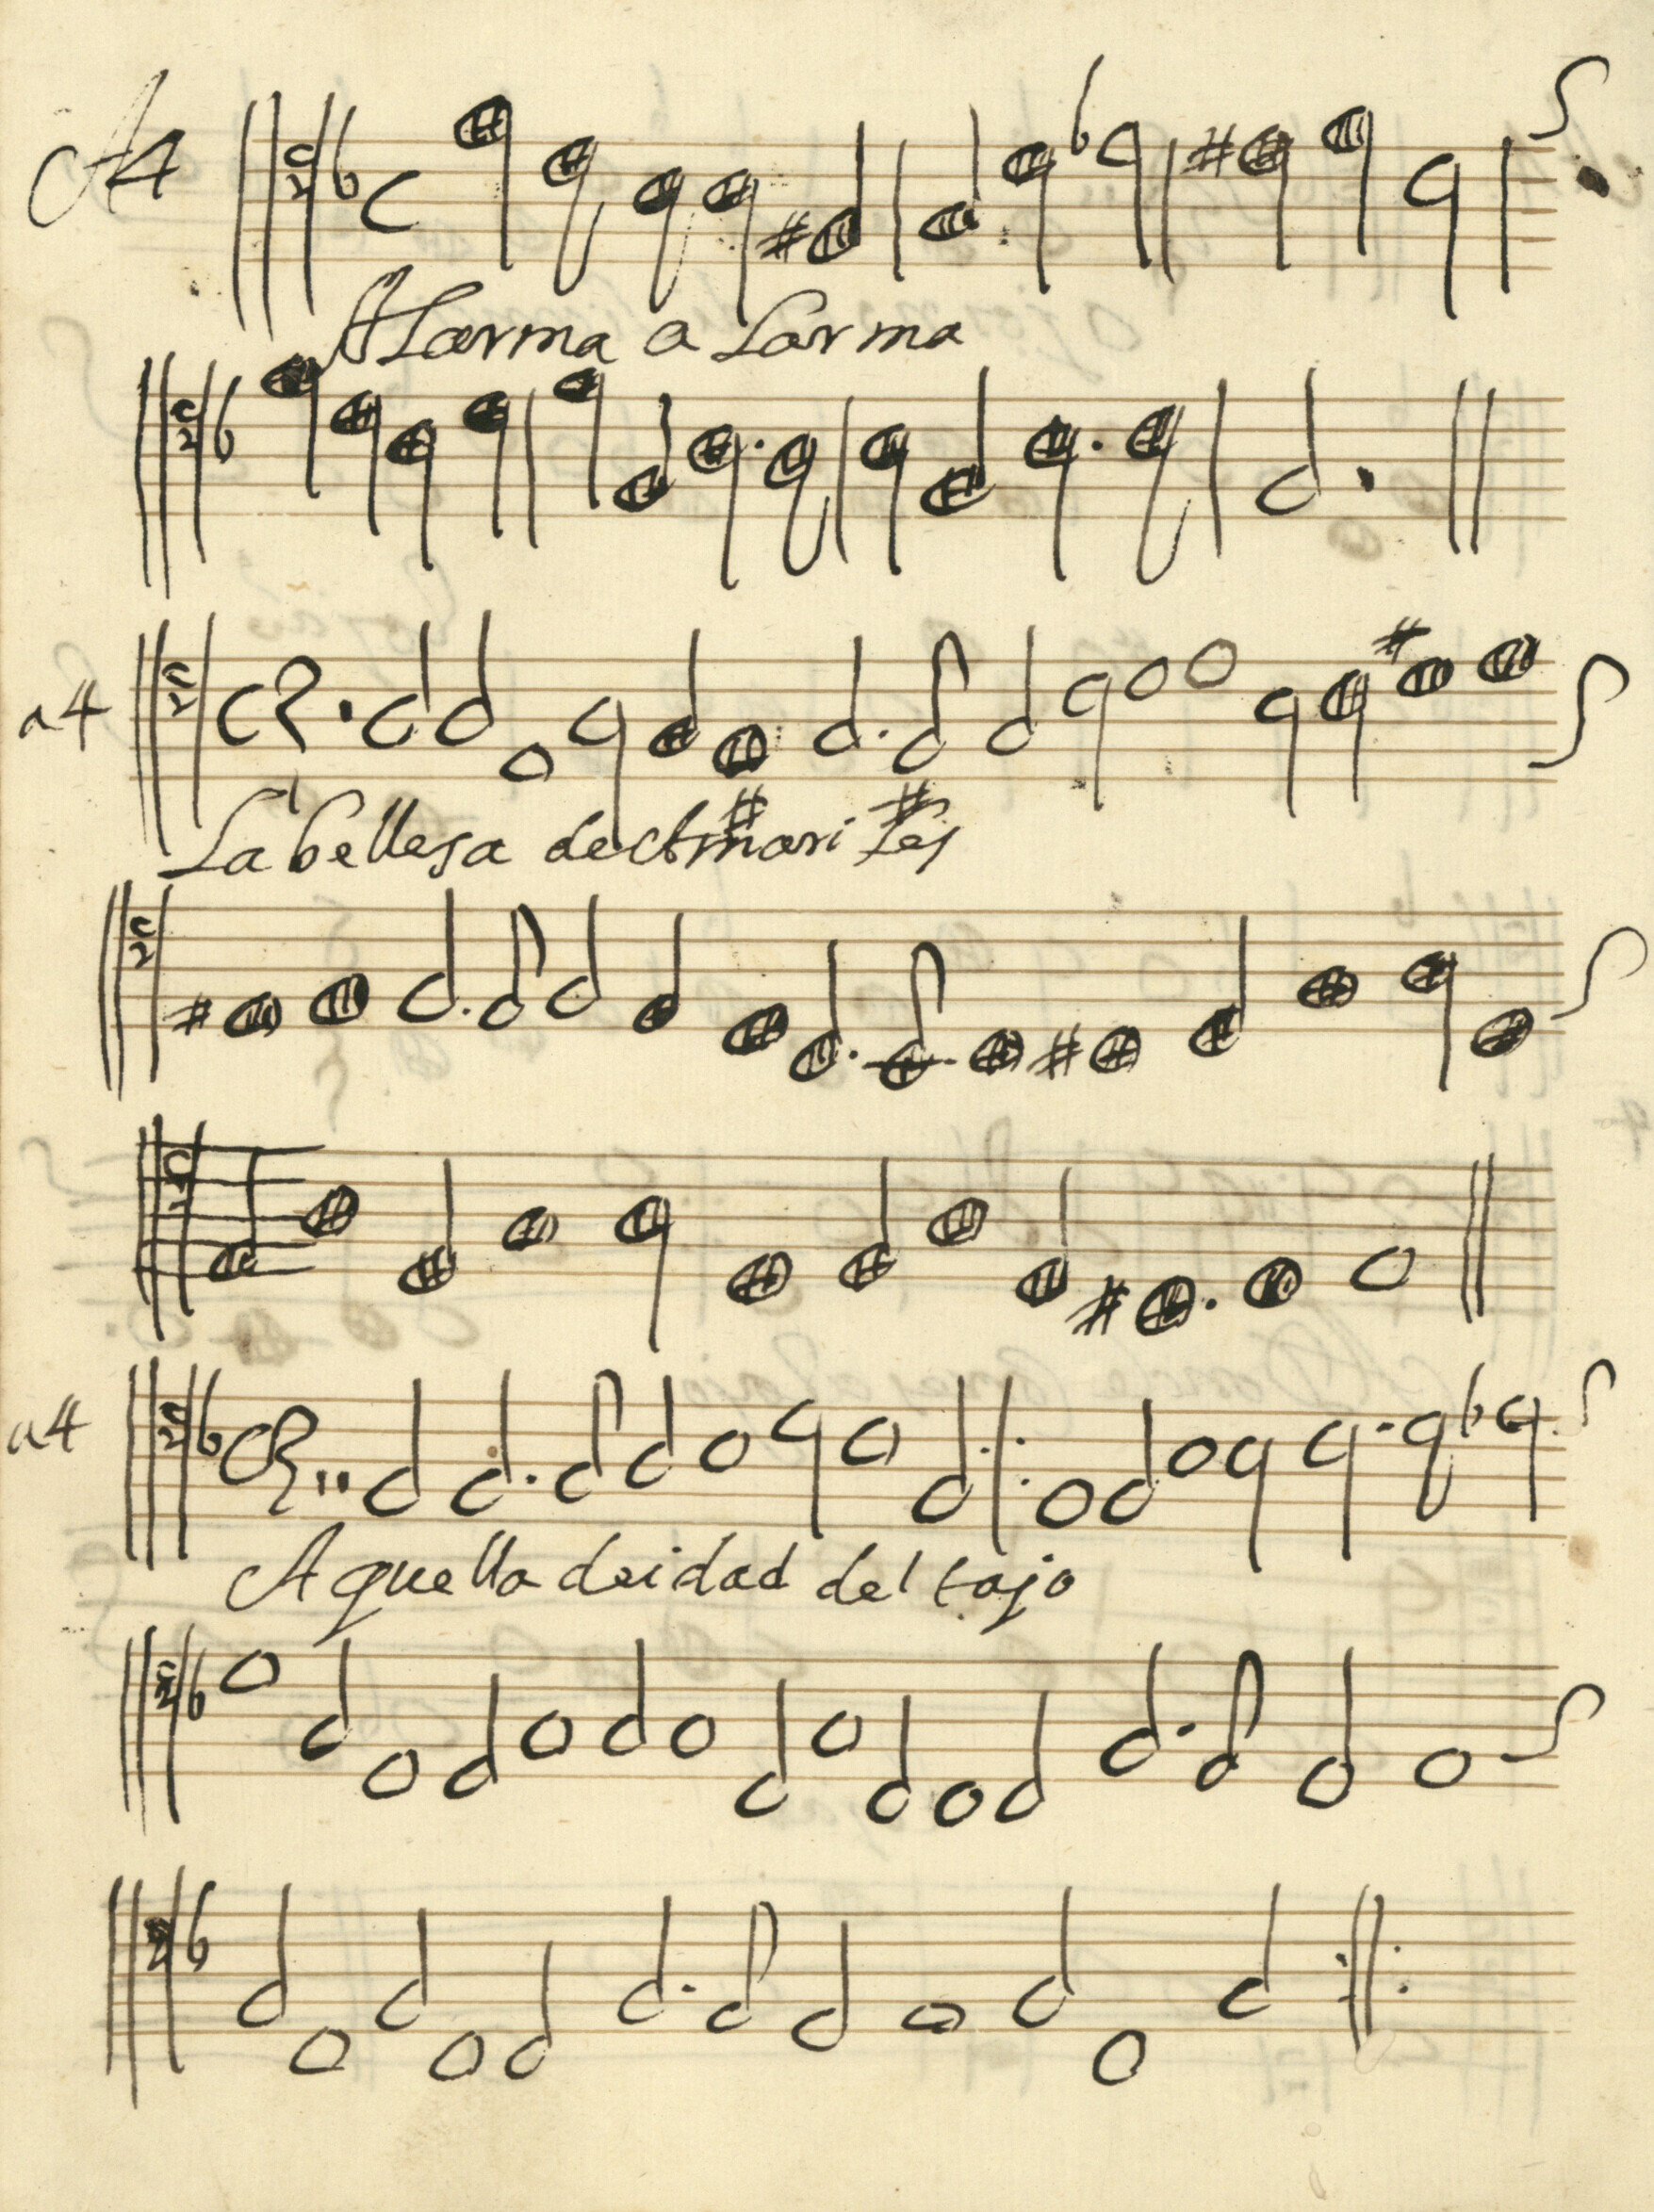 A4
Alarma a larma
a4
La bellesa de Amari les
a4
Aquella deidad del tajo